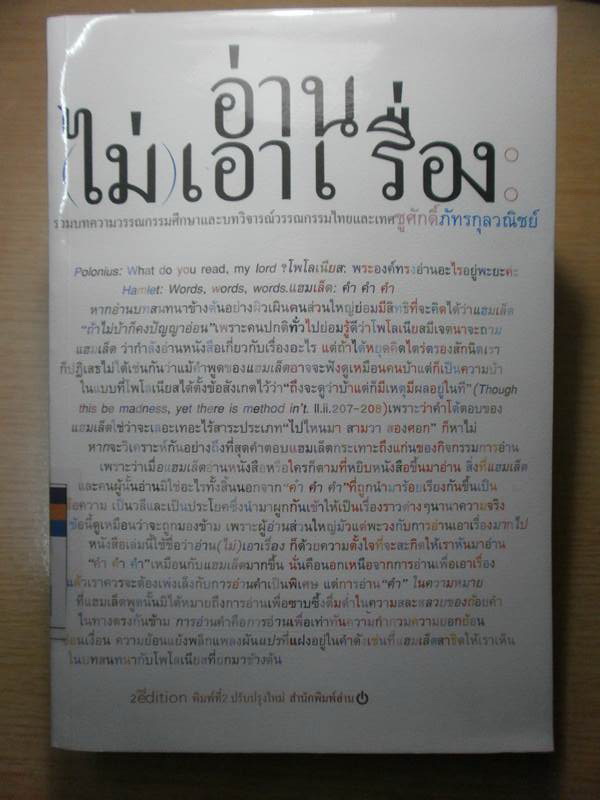 อ่าน
(ไม่)เอาเรื่อง:
รวมบทความวรรณกรรมศึกษาและบทวิจารณ์วรรณกรรมไทยและเทศชูศักดิ์ภัทรกุลวณิชย์
Polonius: What do you read, my lord ?โพโลเนียส: พระองค์ทรงอ่านอะไรอยู่พะยะค่ะ
Hamlet: Words, words, words.แฮมเล็ต: คำ คำ คำ
หากอ่านบทสนทนาข้างต้นอย่างผิวเผินคนส่วนใหญ่ย่อมมีสิทธิที่จะคิดได้ว่าแฮมเล็ต
“ถ้าไม่บ้าก็คงปัญญาอ่อน”เพราะคนปกติทั่วไปย่อมรู้ดีว่าโพโลเนียสมีเจตนาจะถาม
แฮมเล็ต ว่ากำลังอ่านหนังสือเกี่ยวกับเรื่องอะไร แต่ถ้าได้หยุดคิดไตร่ตรองสักนิดเรา
ก็ปฏิเสธไม่ได้เช่นกันว่าแม้คำพูดของแฮมเล็ตอาจจะฟังดูเหมือนคนบ้าแต่ก็เป็นความบ้า
ในแบบที่โพโลเนียสได้ตั้งข้อสังเกตไว้ว่า“ถึงจะดูว่าบ้าแต่ก็มีเหตุมีผลอยู่ในที”(Though
this be madness, yet there is method in't. II.ii.207-208)เพราะว่าคำโต้ตอบของ
แฮมเล็ตใช่ว่าจะเลอะเทอะไร้สาระประเภท“ไปไหนมา สามวา สองศอก” ก็หาไม่
หากจะวิเคราะห์กันอย่างถึงที่สุดคำตอบแฮมเล็ตกระเทาะถึงแก่นของกิจกรรมการอ่าน
เพราะว่าเมื่อแฮมเล็ตอ่านหนังสือหรือใครก็ตามที่หยิบหนังสือขึ้นมาอ่าน สิ่งที่แฮมเล็ต
และคนผู้นั้นอ่านมิใช่อะไรทั้งสิ้นนอกจาก“คำ คำ คำ”ที่ถูกนำมาร้อยเรียงกันขึ้นเป็น
ข้อความ เป็นวลีและเป็นประโยคซึ่งนำมาผูกกันเข้าให้เป็นเรื่องราวต่างๆนานาความจริง
ข้อนี้ดูเหมือนว่าจะถูกมองข้าม เพราะผู้อ่านส่วนใหญ่มัวแต่พะวงกับการอ่านเอาเรื่องมากไป
หนังสือเล่มนี้ใช้ชื่อว่าอ่าน(ไม่)เอาเรื่อง ก็ด้วยความตั้งใจที่จะสะกิดให้เราหันมาอ่าน
“คำ คำ คำ”เหมือนกับแฮมเล็ตมากขึ้น นั่นคือนอกเหนือจากการอ่านเพื่อเอาเรื่อง
แล้วเราควรจะต้องเพ่งเล็งกับการอ่านคำเป็นพิเศษ แต่การอ่าน“คำ” ในความหมาย
ที่แฮมเล็ตพูดนั้นมิได้หมายถึงการอ่านเพื่อซาบซึ้งดื่มด่ำในความสละสลวยของถ้อยคำ
ในทางตรงกันข้าม การอ่านคำคือการอ่านเพื่อเท่าทันความกำกวมความยอกย้อน
ซ่อนเงื่อน ความย้อนแย้งพลิกแพลงผันแปรที่แฝงอยู่ในคำดังเช่นที่แฮมเล็ตสาธิตให้เราเห็น
ในบทสนทนากับโพโลเนียสที่ยกมาข้างต้น
2edition พิมพ์ที่2 ปรับปรุงใหม่ สำนักพิมพ์อ่าน